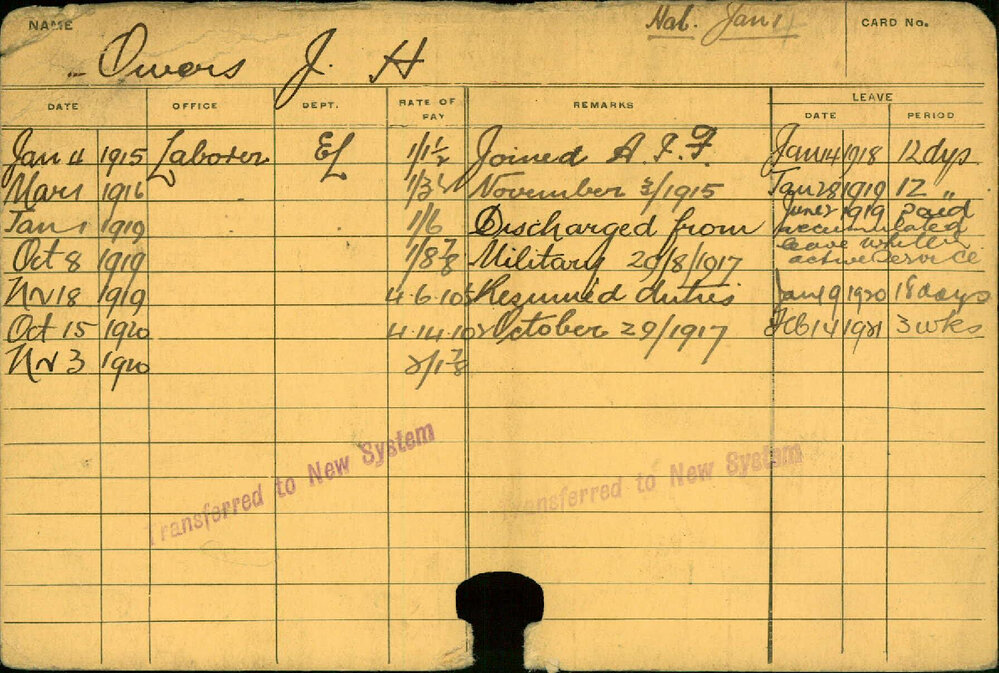 NAME Hal. Jan 14 CARD No.
Owers J. H
DATE OFFICE DEPT. RATE OF PAY REMARKS LEAVE
DATE PERIOD
Jan 4 1915 Laborer EL 1/1½ Joined A.I.F. Jan 14 1918 12 dys.
Mar 1 1916 November 3/1915 Jan 28 1919 12 "
Jan 1 1919 1/6 Discharged from June 2 1919 Paid
accumulated
Oct 8 1919 1/8⅞ Military 29/8/1917 leave whilst
active service
Nv 18 1919 4.6.10½ Resumed duties Jan 19 1920 18 days
Oct 15 1920 4.14.10½ October 29/1917 Feb 14 1921 3 wks
Nv 3 1920 2/1⅞
Transferred to New System
Transferred to New System